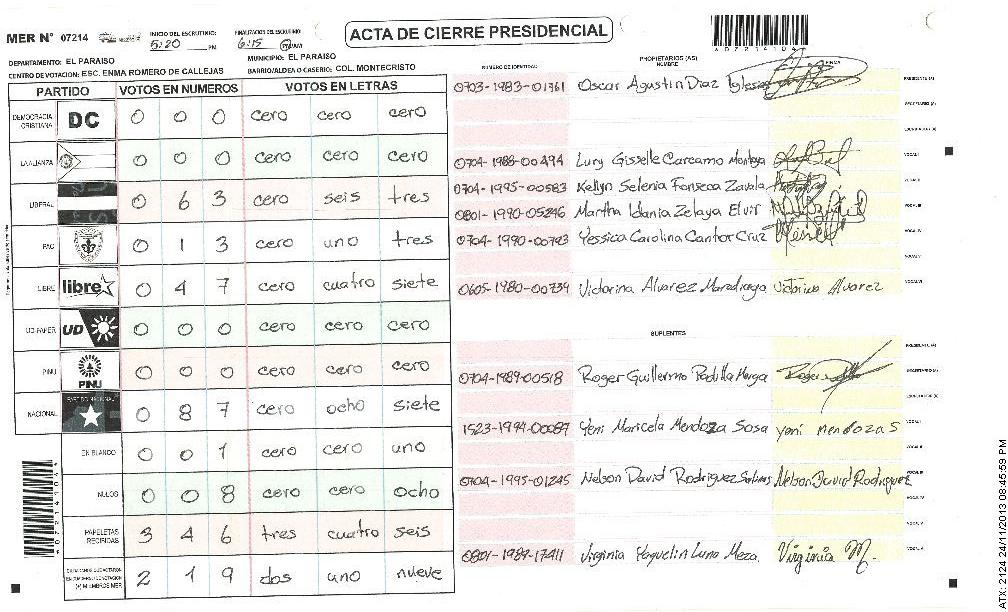 MER N° 07214
INICIO DEL ESCRUTINIO:
5:20 PM
FINALIZACION DEL ESCRUTINIO
6:15 PM/AM
ACTA DE CIERRE PRESIDENCIAL
DEPARTAMENTO: EL PARAISO
MUNICIPIO: EL PARAISO
CENTRO DE VOTACION: ESC. ENMA ROMERO DE CALLEJAS
BARRIO/ALDEA O CASERIO: COL. MONTECRISTO
PARTIDO VOTOS EN NUMEROS VOTOS EN LETRAS
DEMOCRACIA CRISTIANA DC 0 0 0 cero cero cero
LA ALIANZA 0 0 0 cero cero cero
LIBERAL 0 6 3 cero seis tres
PAC 0 1 3 cero uno tres
LIBRE libre 0 4 7 cero cuatro siete
UD-FAPER UD 0 0 0 cero cero cero
PINU PINU 0 0 0 cero cero cero
NACIONAL PARTIDO NACIONAL 0 8 7 cero ocho siete
EN BLANCO 0 0 1 cero cero uno
NULOS 0 0 8 cero cero ocho
PAPELETAS RECIBIDAS 3 4 6 tres cuatro seis
(+) MIEMBROS MER 2 1 9 dos uno nueve
NUMERO DE IDENTIDAD PROPIETARIOS (AS) NOMBRE FIRMA
0703-1983-01361 Oscar Agustin Diaz Iglesias PRESIDENTE (A)
SECRETARIO (A)
ESCRUTADOR (A)
0704-1988-00494 Lury Gisselle Carcamo Montoya VOCAL I
0704-1995-00583 Kellyn Selenia Fonseca Zavala VOCAL II
0801-1990-05246 Martha Idania Zelaya Elvir VOCAL III
0704-1990-00793 Yessica Carolina Cantor Cruz VOCAL IV
VOCAL V
0605-1980-00739 Victorina Alvarez Maradiaga Victorina Alvarez VOCAL VI
SUPLENTES
PRESIDENTE (A)
0704-1989-00518 Roger Guillermo Padilla Moya SECRETARIO (A)
ESCRUTADOR (A)
1523-1994-00087 Yeni Maricela Mendoza Sosa yeni mendoza S VOCAL I
VOCAL II
0704-1995-01245 Nelson David Rodriguez Salinas Nelson David Rodriguez VOCAL III
VOCAL IV
VOCAL V
0801-1989-17411 Virginia Yaquelin Luna Meza. Virginia M. VOCAL VI
ATX: 2124 24/11/2013 08:45:59 PM